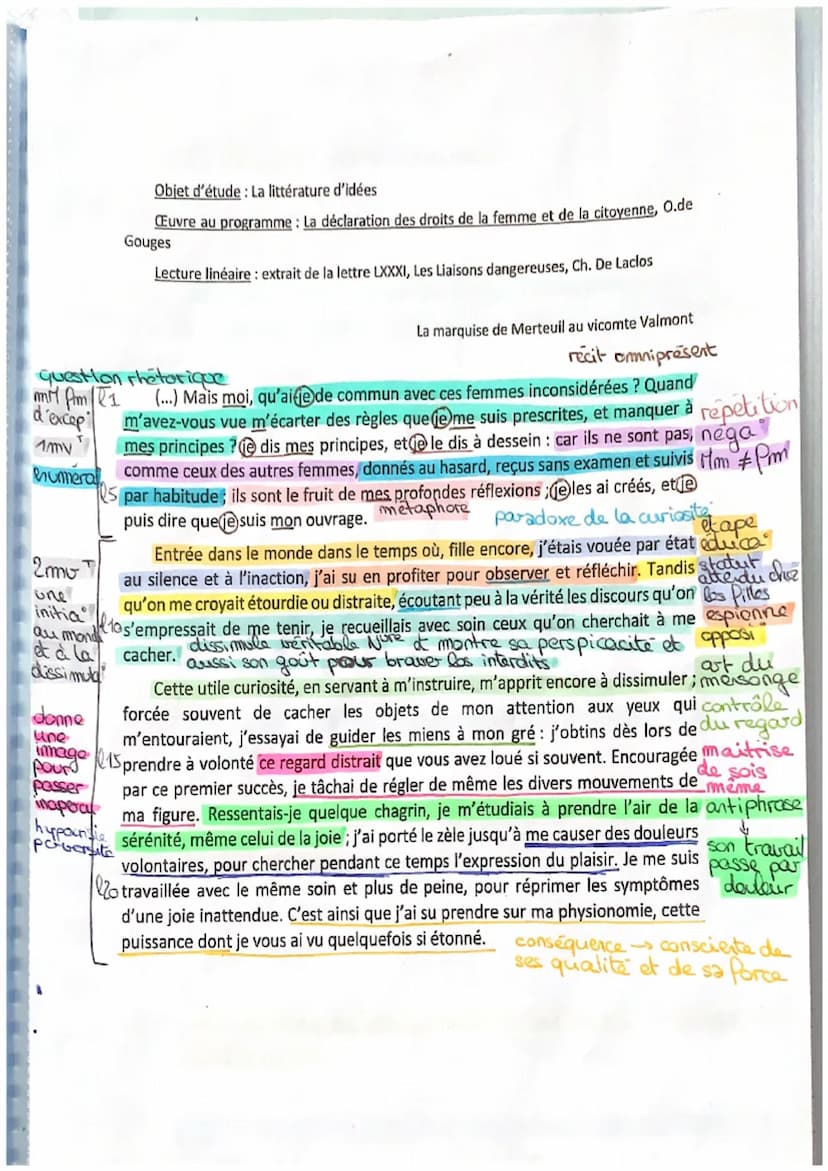 Objet d'étude : La littérature d'idées
Œuvre au programme : La déclaration des droits de la femme et de la citoyenne, O.de
Gouges
Lecture linéaire : extrait de la lettre LXXXI, Les Liaisons dangereuses, Ch. De Laclos
La marquise de Merteuil au vicomte Valmont
récit omniprésent
question rhétorique
l1 (...) Mais moi, qu'ai je de commun avec ces femmes inconsidérées ? Quand
m'avez-vous vue m'écarter des règles que je me suis prescrites, et manquer à
répétition
d'excep°
mes principes ? je dis mes principes, et je le dis à dessein : car ils ne sont pas,
néga°
1mvT
comme ceux des autres femmes, donnés au hasard, reçus sans examen et suivis
Mm ≠ fm
enumérat°
l5 par habitude ; ils sont le fruit de mes profondes réflexions ; je les ai créés, et je
métaphore
puis dire que je suis mon ouvrage.
paradoxe de la curiosité
étape
éduca°
Entrée dans le monde dans le temps où, fille encore, j'étais vouée par état
2mvT
statut
attendu chez
les filles
au silence et à l'inaction, j'ai su en profiter pour observer et réfléchir. Tandis
une
initia°
au monde
et à la
dissimula°
qu'on me croyait étourdie ou distraite, écoutant peu à la vérité les discours qu'on
espionne
l10 s'empressait de me tenir, je recueillais avec soin ceux qu'on cherchait à me
opposi°
cacher.
dissimule véritable et montre sa perspicacité et
aussi son goût pour braver les interdits
art du
mensonge
Cette utile curiosité, en servant à m'instruire, m'apprit encore à dissimuler ;
forcée souvent de cacher les objets de mon attention aux yeux qui
contrôle
du regard
donne
une
image
pour
passer
m'entouraient, j'essayai de guider les miens à mon gré : j'obtins dès lors de
l15 prendre à volonté ce regard distrait que vous avez loué si souvent. Encouragée
maitrise
de sois
même
par ce premier succès, je tâchai de régler de même les divers mouvements de
ma figure. Ressentais-je quelque chagrin, je m'étudiais à prendre l'air de la
antiphrase
↓
son travail
passe par
douleur
sérénité, même celui de la joie ; j'ai porté le zèle jusqu'à me causer des douleurs
volontaires, pour chercher pendant ce temps l'expression du plaisir. Je me suis
l20 travaillée avec le même soin et plus de peine, pour réprimer les symptômes
d'une joie inattendue. C'est ainsi que j'ai su prendre sur ma physionomie, cette
puissance dont je vous ai vu quelquefois si étonné.
conséquence → consciente de
ses qualité et de sa force